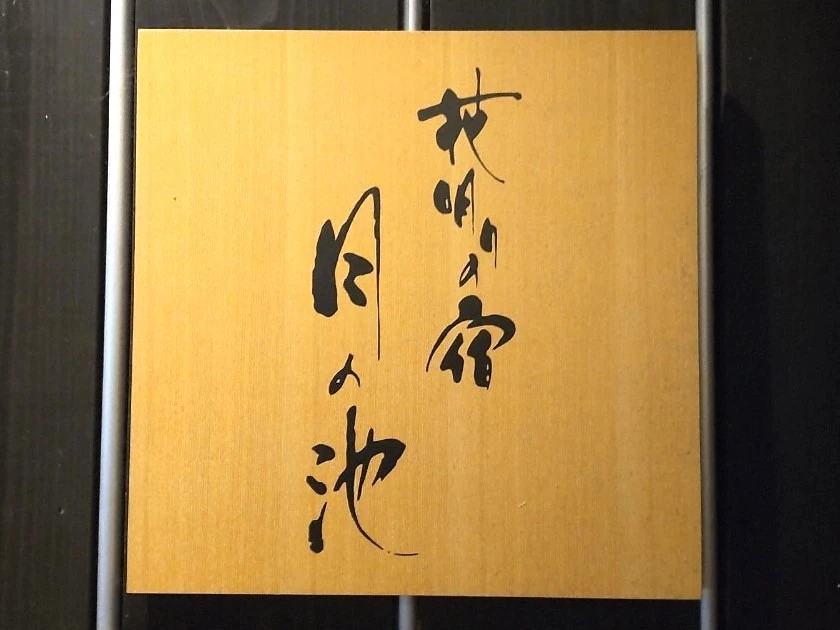 花明りの宿
月の池